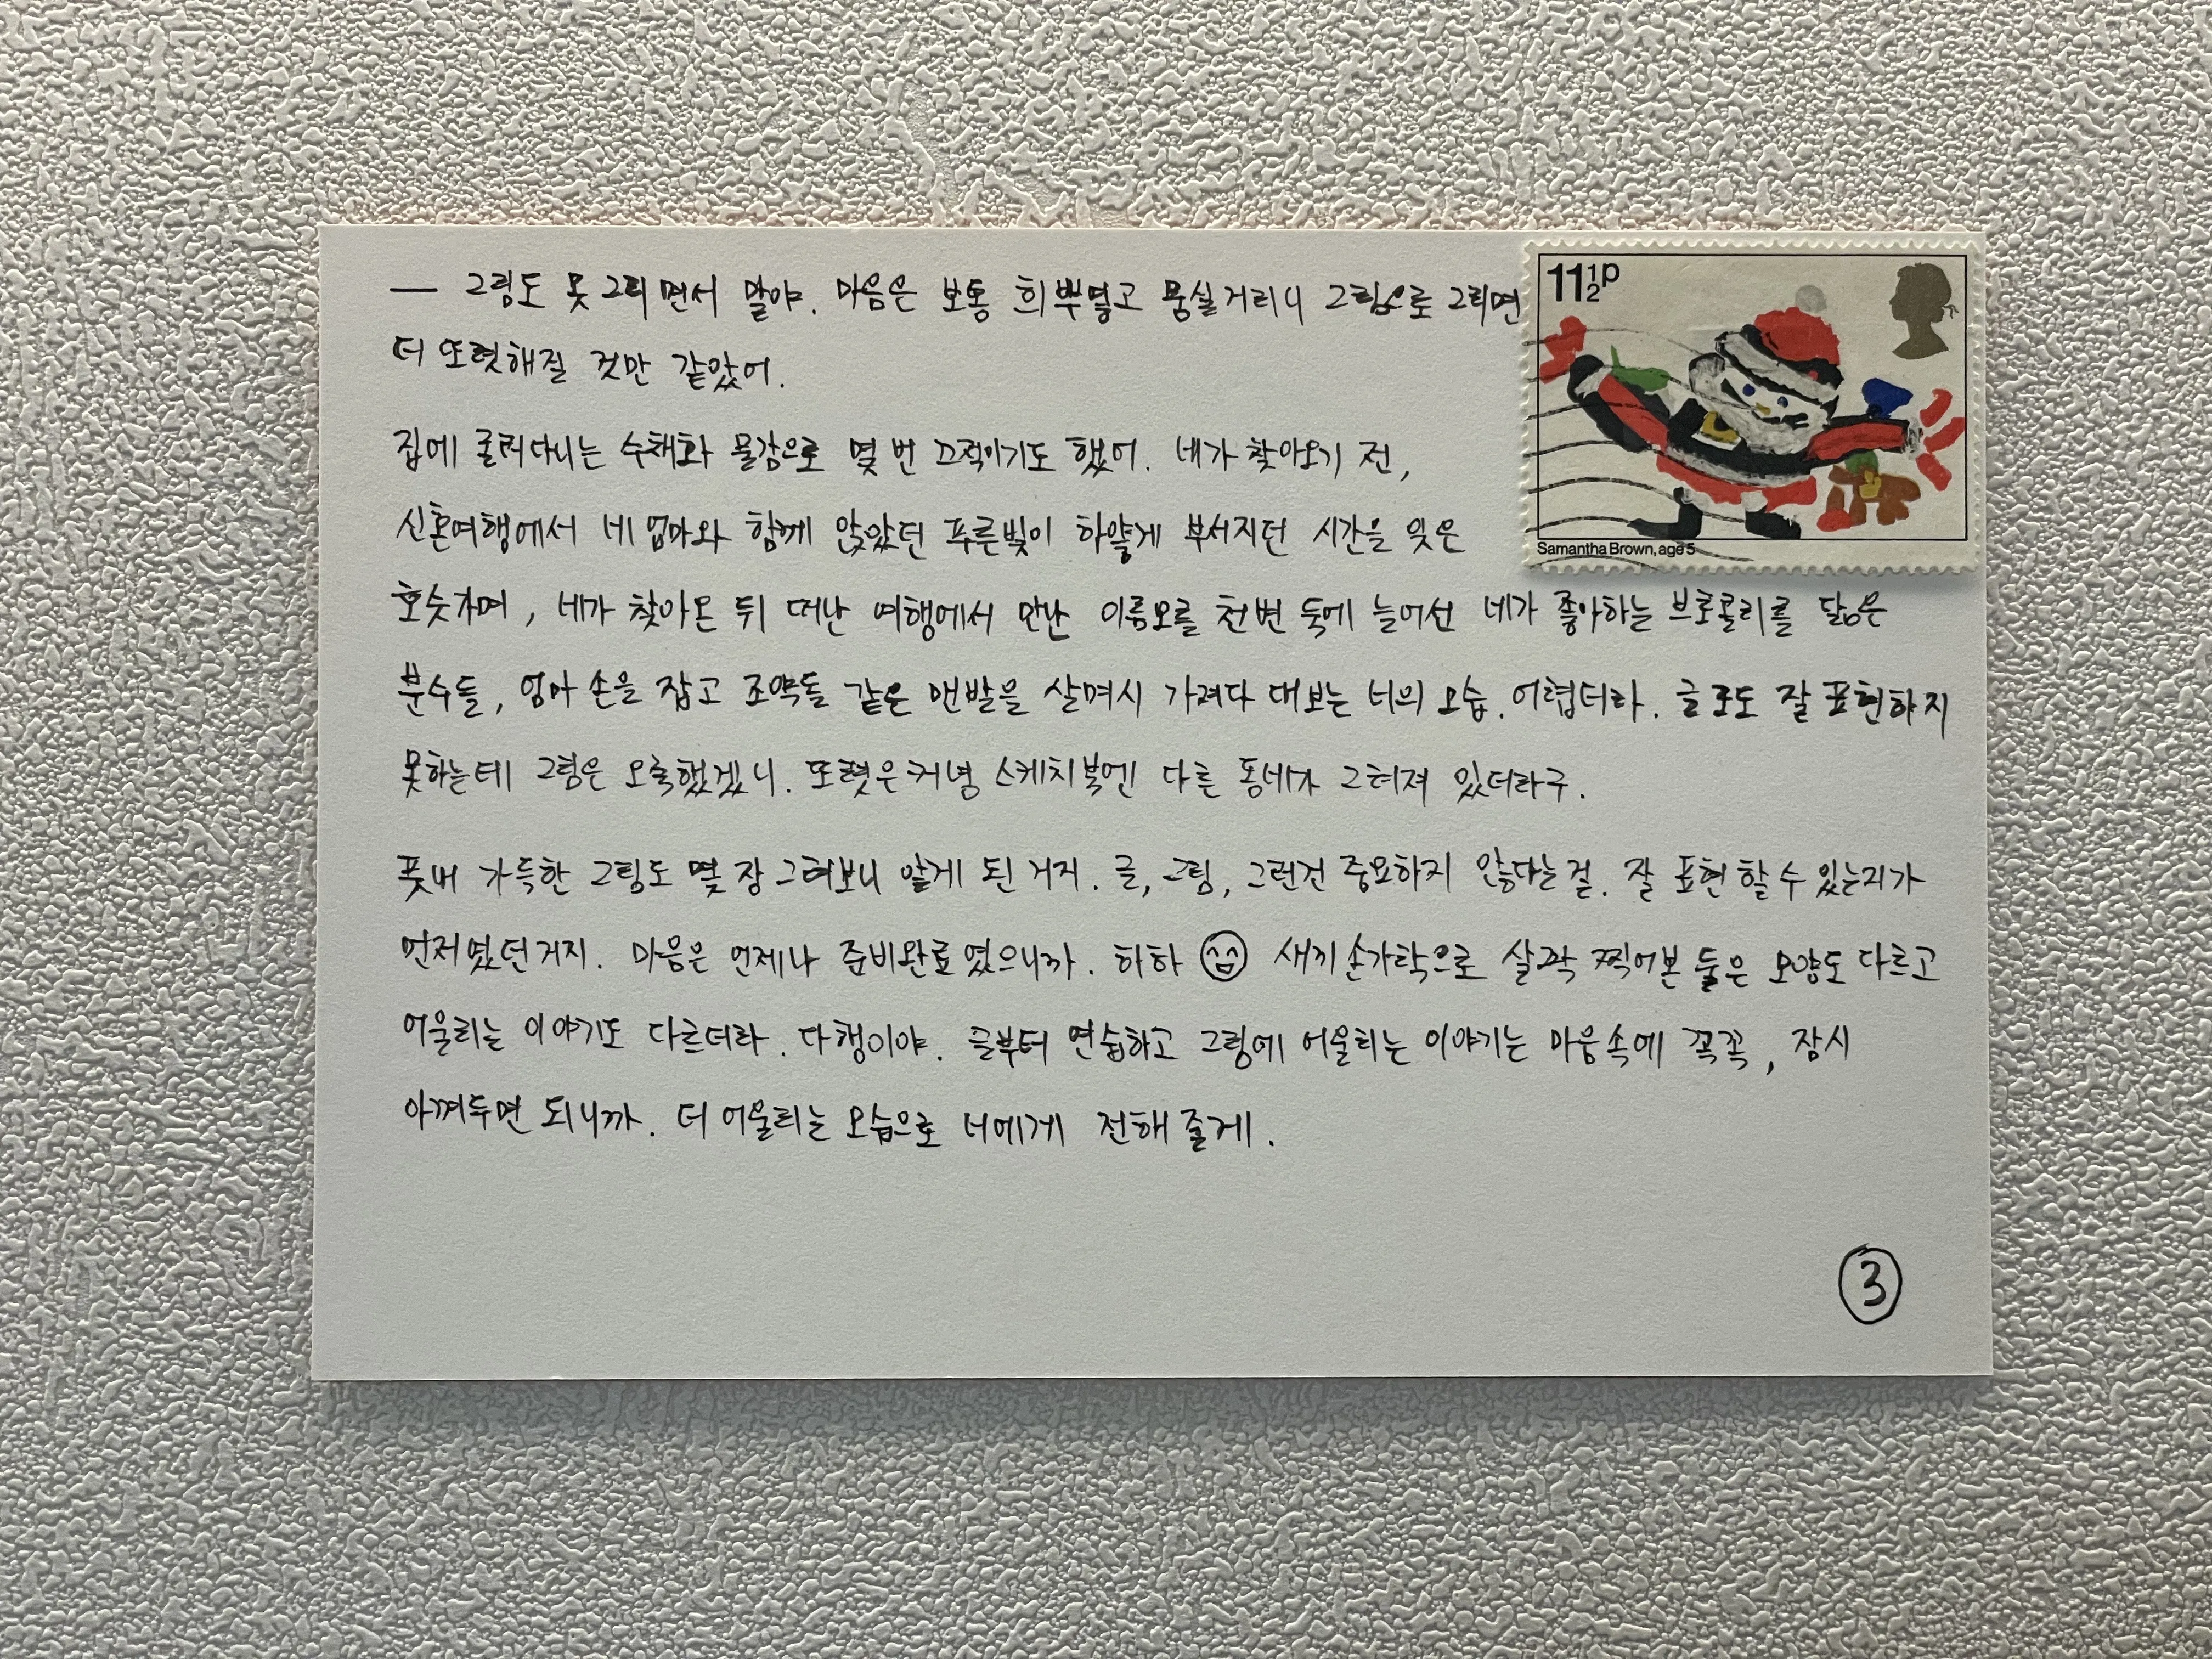 — 그림도 못 그리면서 말야. 마음은 보통 희뿌옇고 뭉실거리니 그림으로 그리면
더 또렷해질 것만 같았어.
집에 굴러다니는 수채화 물감으로 몇 번 끄적이기도 했어. 네가 찾아오기 전,
신혼여행에서 네 엄마와 함께 앉았던 푸른빛이 하얗게 부서지던 시간을 잊은
호숫가며, 네가 찾아온 뒤 떠난 여행에서 만난 이름모를 천변 둑에 늘어선 네가 좋아하는 브로콜리를 닮은
분수들, 엄마 손을 잡고 조약돌 같은 맨발을 살며시 가져다 대보는 너의 모습. 어렵더라. 글로도 잘 표현하지
못하는데 그림은 오죽했겠니. 또렷은커녕 스케치북엔 다른 동네가 그려져 있더라구.
풋내 가득한 그림도 몇 장 그려보니 알게 된 거지. 글, 그림, 그런건 중요하지 않다는 걸. 잘 표현 할 수 있는지가
먼저였던거지. 마음은 언제나 준비완료였으니까. 하하 새끼손가락으로 살짝 찍어본 둘은 모양도 다르고
어울리는 이야기도 다르더라. 다행이야. 글부터 연습하고 그림에 어울리는 이야기는 마음속에 꼭꼭, 잠시
아껴두면 되니까. 더 어울리는 모습으로 너에게 전해 줄게.
③
11½P
Samantha Brown, age 5